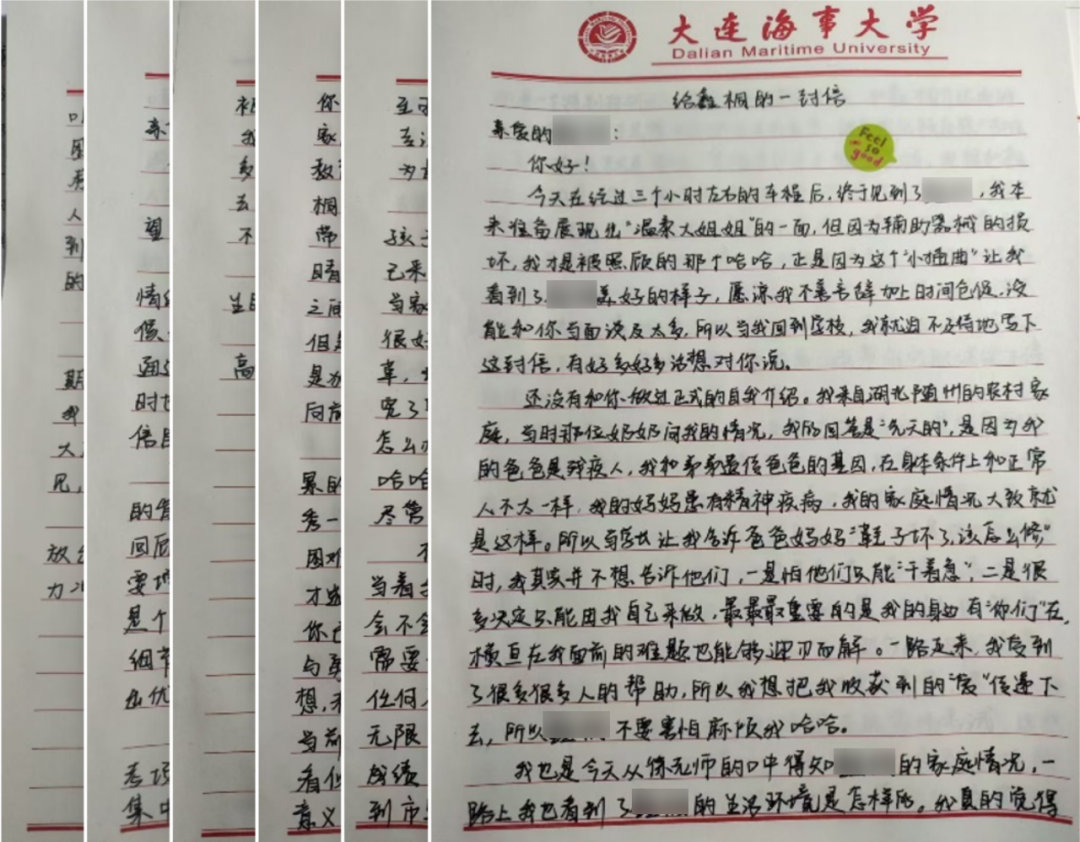 人
到
的
期
我
大
见,
放
力
望
假
时
信
的
回
要
是个
细节
出优
考项
集中
我
多
去
不
高
你
家
教
桐
带
晴
之间
但是
是为
向前
累的
秀一
困难
才
你
与
想,
当前
看似
意义
至于
去
为
孩子
己来
当家
很好
章,
完了
怎么
哈哈
尽管
当看
会不会
需要
任何
无限
成绩
到市
大连海事大学
Dalian Maritime University
给鑫桐的一封信
亲爱的 :
Feel so good
你好!
今天在经过三个小时左右的车程后,终于见到了 ,我本
来准备展现出“温柔大姐姐”的一面,但因为辅助器械的损
坏,我才是被照顾的那个哈哈,正是因为这个“小插曲”让我
看到了 美好的样子,愿谅我不善言辞加上时间仓促,没
能和你当面谈及太多,所以当我回到学校,我就迫不及待地写下
这封信,有好多好多话想对你说。
还没有和你做过正式的自我介绍。我来自湖北随州的农村家
庭,当时那位奶奶问我的情况,我的回答是“先天的”,是因为我
的爸爸是残疾人,我和弟弟遗传爸爸的基因,在身体条件上和正常
人不太一样,我的妈妈患有精神疾病,我的家庭情况大致就
是这样。所以当家长让我告诉爸爸妈妈“鞋子坏了,该怎么修”
时,我真实并不想告诉他们,一是怕他们只能“干着急”,二是很
多决定只能由我自己来做,最最最重要的是我的身边有“你们”在,
横亘在我面前的难题也能够迎刃而解。一路走来,我受到
了很多很多人的帮助,所以我想把我收获到的“爱”传递下
去,所以 不要害怕麻烦我哈哈。
我也是今天从徐老师的口中得知 的家庭情况,一
路上我也看到了 的生活环境是怎样的。我真的觉得